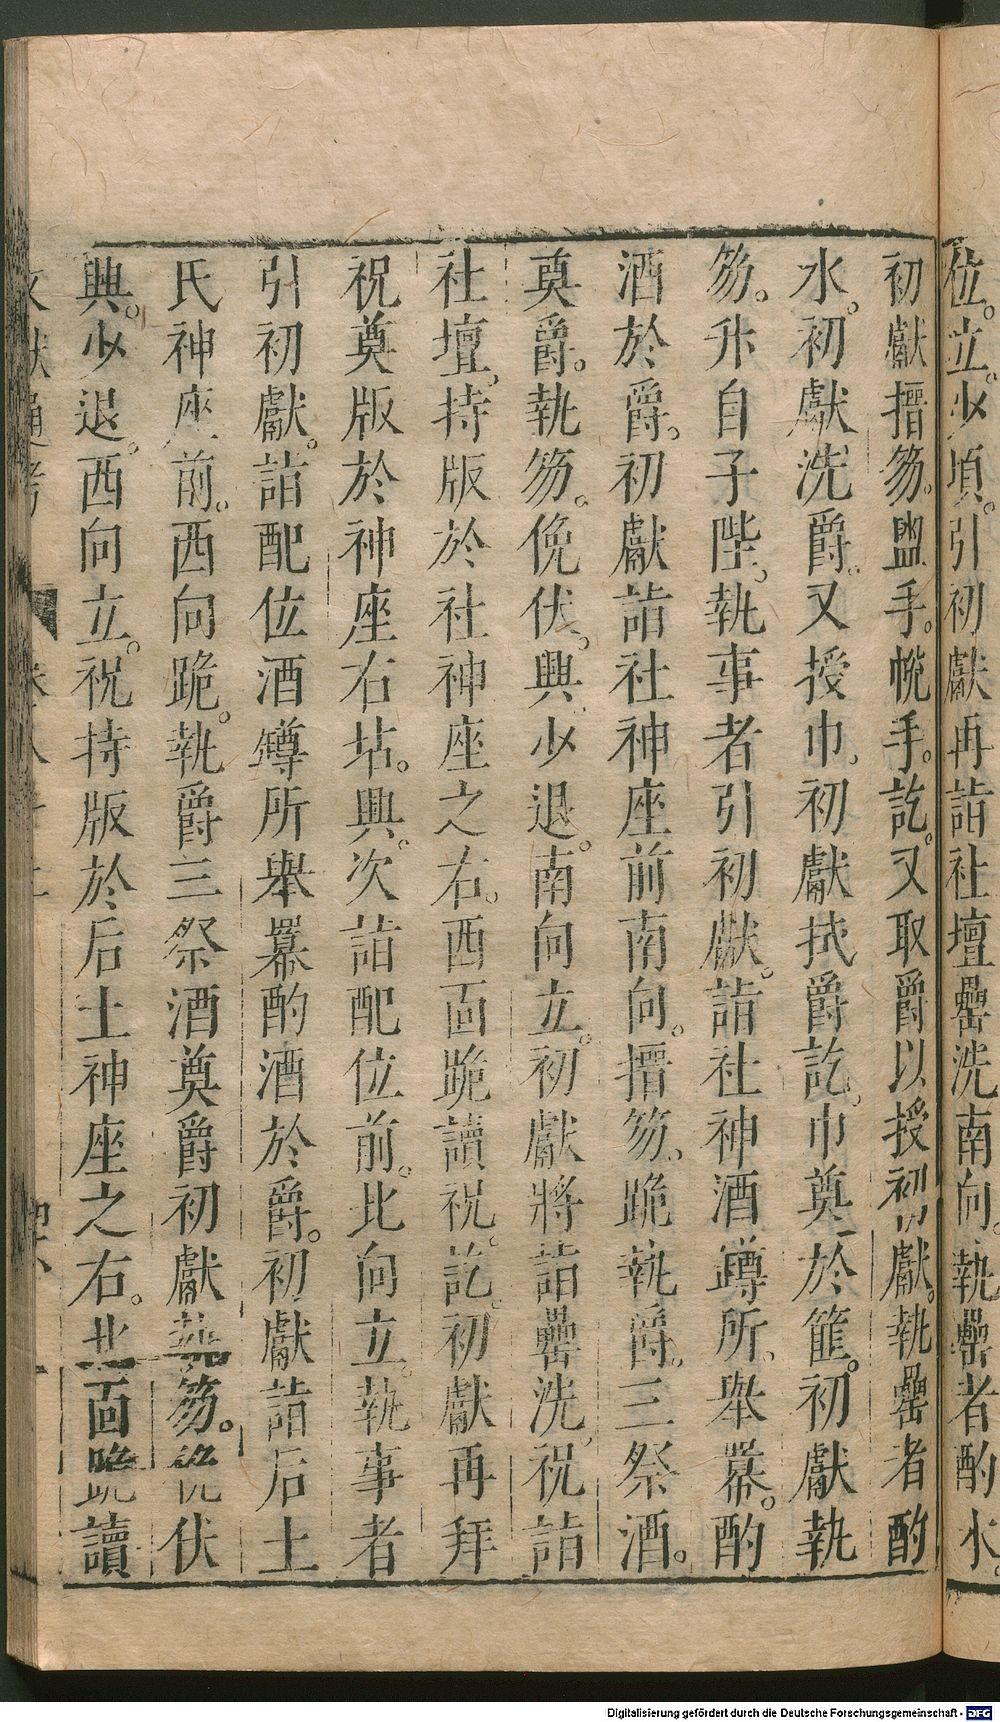 位。立。少頃。引初獻再詣社壇罍洗南向。執罍者酌水。
初獻搢笏。盥手。帨手。訖。又取爵以授初獻。執罍者酌
水。初獻洗爵。又授巾。初獻拭爵訖。巾奠於篚。初獻執
笏。升自子陛。執事者引初獻。詣社神酒罇所。舉羃。酌
酒於爵。初獻詣社神座前南向。搢笏。跪執爵。三祭酒。
奠爵。執笏。俛伏。興少退。南向立。初獻將詣罍洗。祝詣
社壇。持版於社神座之右。西面跪讀祝。訖。初獻再拜
祝奠版於神座右坫。興。次詣配位前。北向立。執事者
引初獻。詣配位酒罇所舉羃酌酒於爵。初獻詣后土
氏神座前。西向跪。執爵三祭酒奠爵初獻執笏。俛伏
興。少退。西向立。祝持版於后土神座之右。北面跪讀
文獻通考 卷八十二
Digitalisierung gefördert durch die Deutsche Forschungsgemeinschaft - DFG